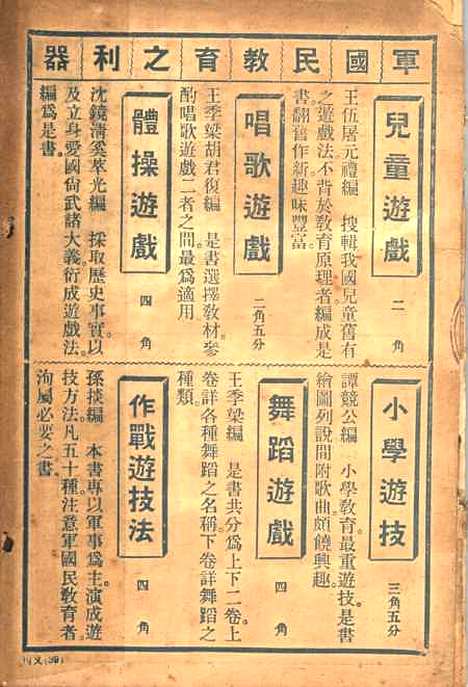 軍國民教育之利器
兒童遊戲
二角
王伍屠元禮編　搜輯我國兒童舊有
之遊戲法。不背於教育原理者。編成是
書。翻舊作新。趣味豐富。
唱歌遊戲
二角五分
王季梁胡君復編　是書選擇教材。參
酌唱歌遊戲二者之間。最爲適用
體操遊戲
四角
沈鏡清奚萃光編　採取歷史事實。以
及立身愛國尙武諸大義。衍成遊戲法。
編爲是書。
小學遊技
三角五分
譚競公編　小學教育。最重遊技。是書
繪圖列說。間附歌曲。頗饒興趣。
舞蹈遊戲
四角
王季梁編　是書共分爲上下二卷。上
卷詳各種舞蹈之名稱。下卷詳舞蹈之
種類。
作戰遊技法
四角
孫掞編　本書專以軍事爲主。演成遊
技方法。凡五十種。注意軍國民教育者。
洵屬必要之書。